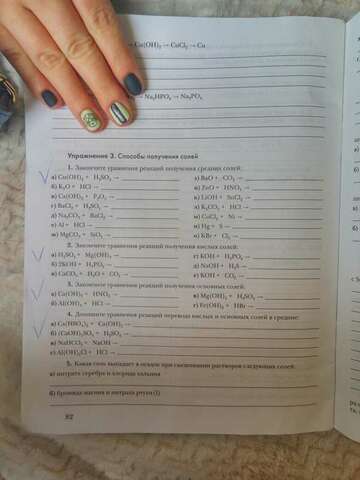 → Cu(OH)₂ → CuCl₂ → Cu
→ Na₂HPO₄ → Na₃PO₄
Упражнение 3. Способы получения солей
1. Закончите уравнения реакций получения средних солей:
а) Cu(OH)₂ + H₂SO₄ →
б) K₂O + HCl →
в) Ca(OH)₂ + P₂O₅ →
г) BaCl₂ + H₂SO₄ →
д) Na₂CO₃ + BaCl₂ →
е) Al + HCl →
ж) MgCO₃ + SiO₂ →
з) BaO + CO₂ →
и) ZnO + HNO₃ →
к) LiOH + SnCl₂ →
л) K₂CO₃ + HCl →
м) CuCl₂ + Ni →
н) Hg + S →
о) KBr + Cl₂ →
2. Закончите уравнения реакций получения кислых солей:
а) H₂SO₄ + Mg(OH)₂ →
б) 2KOH + H₃PO₄ →
в) CaCO₃ + H₂O + CO₂ →
г) KOH + H₃PO₄ →
д) NaOH + H₂S →
е) KOH + CO₂ →
3. Закончите уравнения реакций получения основных солей:
а) Ca(OH)₂ + HNO₃ →
б) Al(OH)₃ + HCl →
в) Mg(OH)₂ + H₂SO₄ →
г) Fe(OH)₃ + HBr →
4. Допишите уравнения реакций перевода кислых и основных солей в средние:
а) Ca(HSO₃)₂ + Ca(OH)₂ →
б) (CuOH)₂SO₄ + H₂SO₄ →
в) NaHCO₃ + NaOH →
г) Al(OH)₂Cl + HCl →
5. Какая соль выпадает в осадок при смешивании растворов следующих солей:
а) нитрата серебра и хлорида кальция
б) бромида магния и нитрата ртути(I)
82